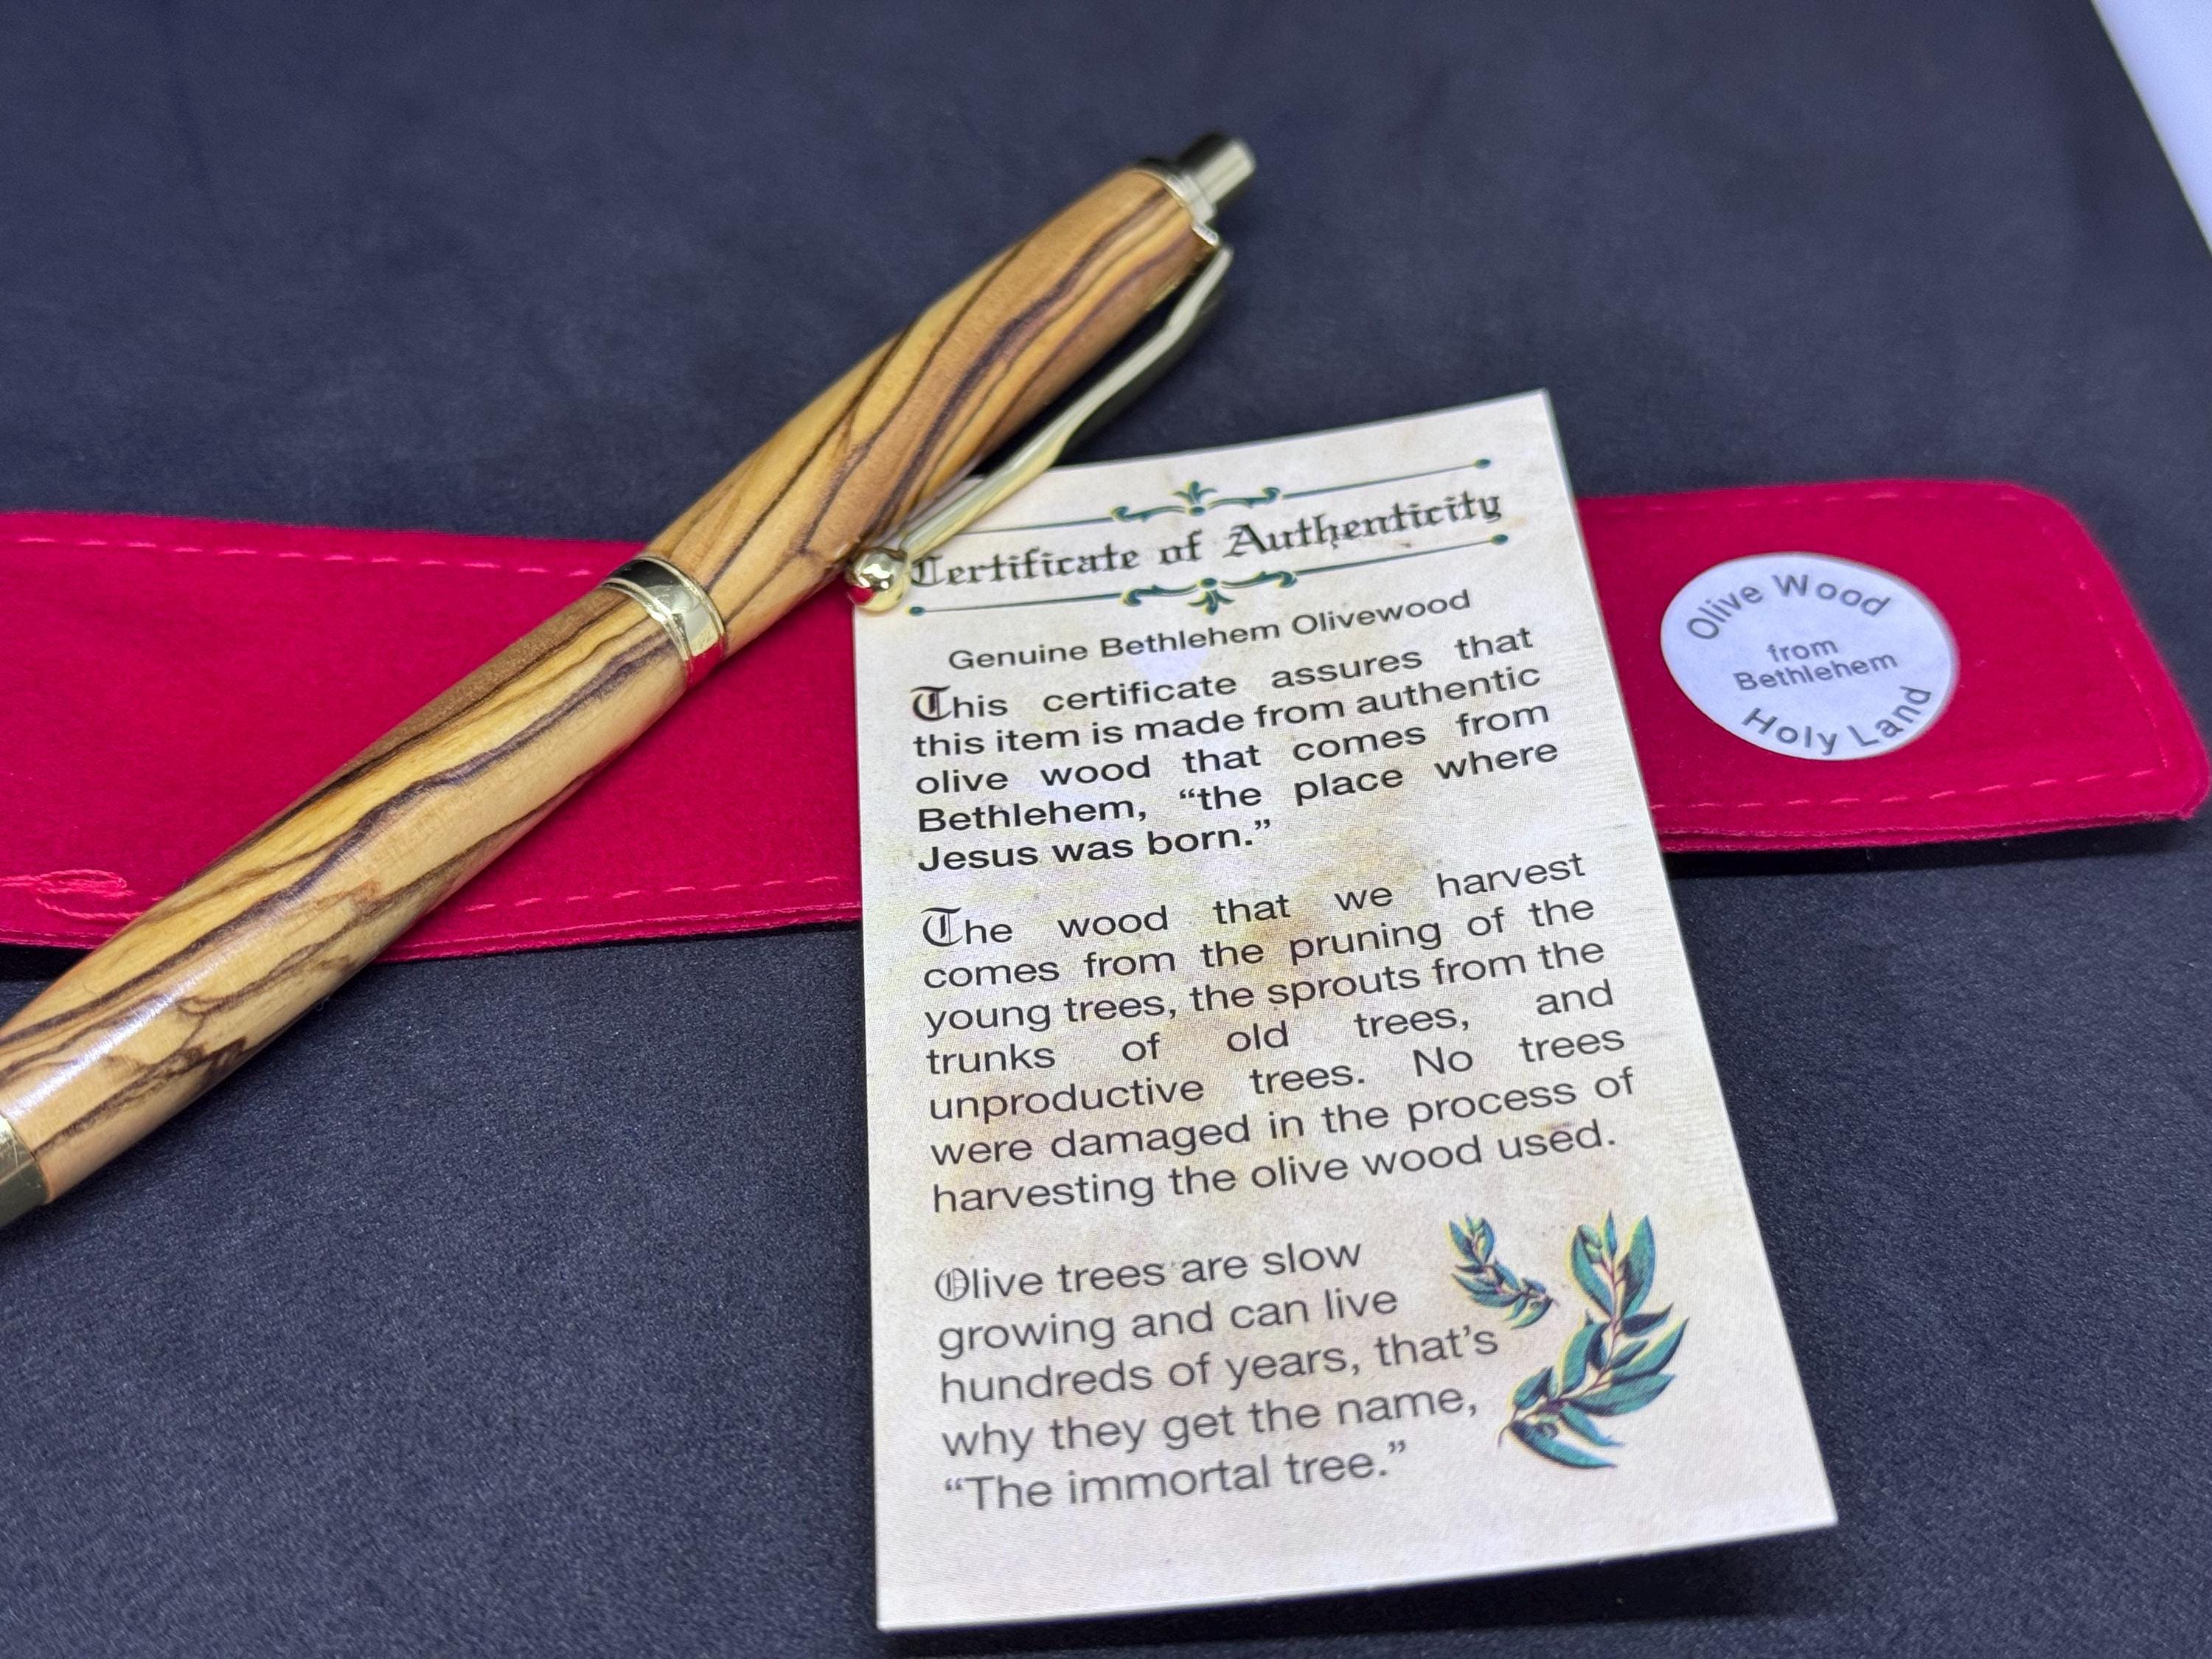 Certificate of Authenticity
Genuine Bethlehem Olivewood
This certificate assures that
this item is made from authentic
olive wood that comes from
Bethlehem, “the place where
Jesus was born.”
The wood that we harvest
comes from the pruning of the
young trees, the sprouts from the
trunks of old trees, and
unproductive trees. No trees
were damaged in the process of
harvesting the olive wood used.
Olive trees are slow
growing and can live
hundreds of years, that’s
why they get the name,
“The immortal tree.”
Olive Wood
from
Bethlehem
Holy Land